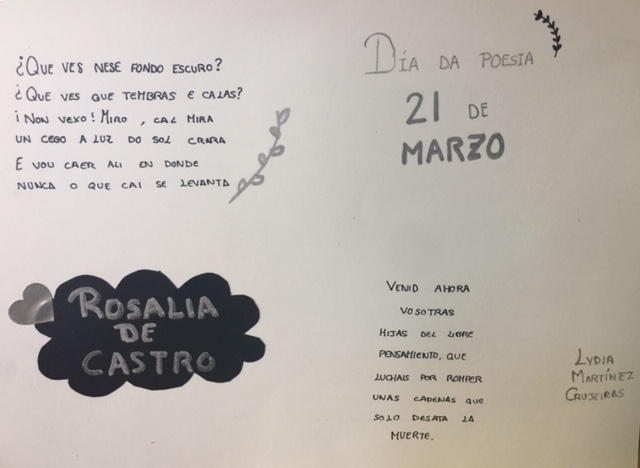 ¿QUE VES NESE FONDO ESCURO?
¿QUE VES QUE TEMBRAS E CALAS?
¡NON VEXO! MIRO, CAL MIRA
UN CEGO A LUZ DO SOL CRARA
E VOU CAER ALI EN DONDE
NUNCA O QUE CAI SE LEVANTA
ROSALIA
DE
CASTRO
DÍA DA POESIA
21 DE
MARZO
VENID AHORA
VOSOTRAS
HIJAS DEL LIBRE
PENSAMIENTO, QUE
LUCHAIS POR ROMPER
UNAS CADENAS QUE
SOLO DESATA LA
MUERTE.
LYDIA
MARTÍNEZ
CRUJEIRAS